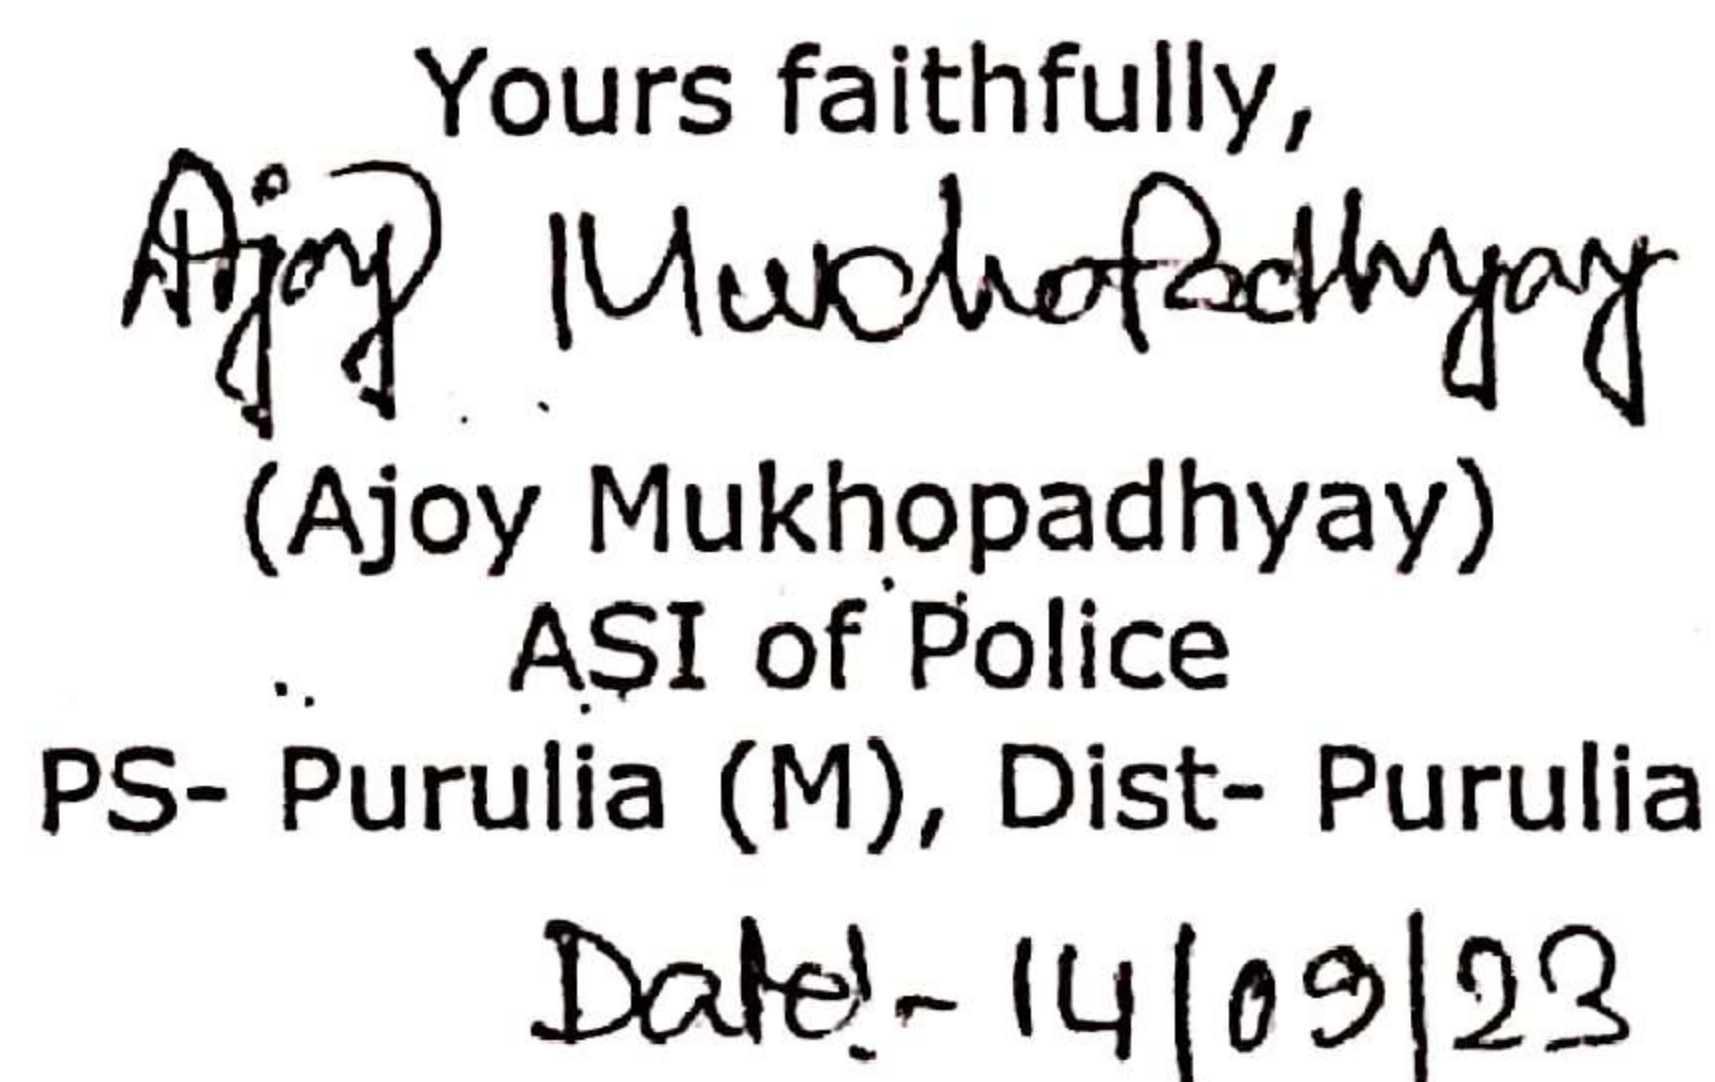 Yours faithfully,
Ajoy Mukhopadhyay
(Ajoy Mukhopadhyay)
ASI of Police
PS- Purulia (M), Dist- Purulia
Date:- 14/09/23